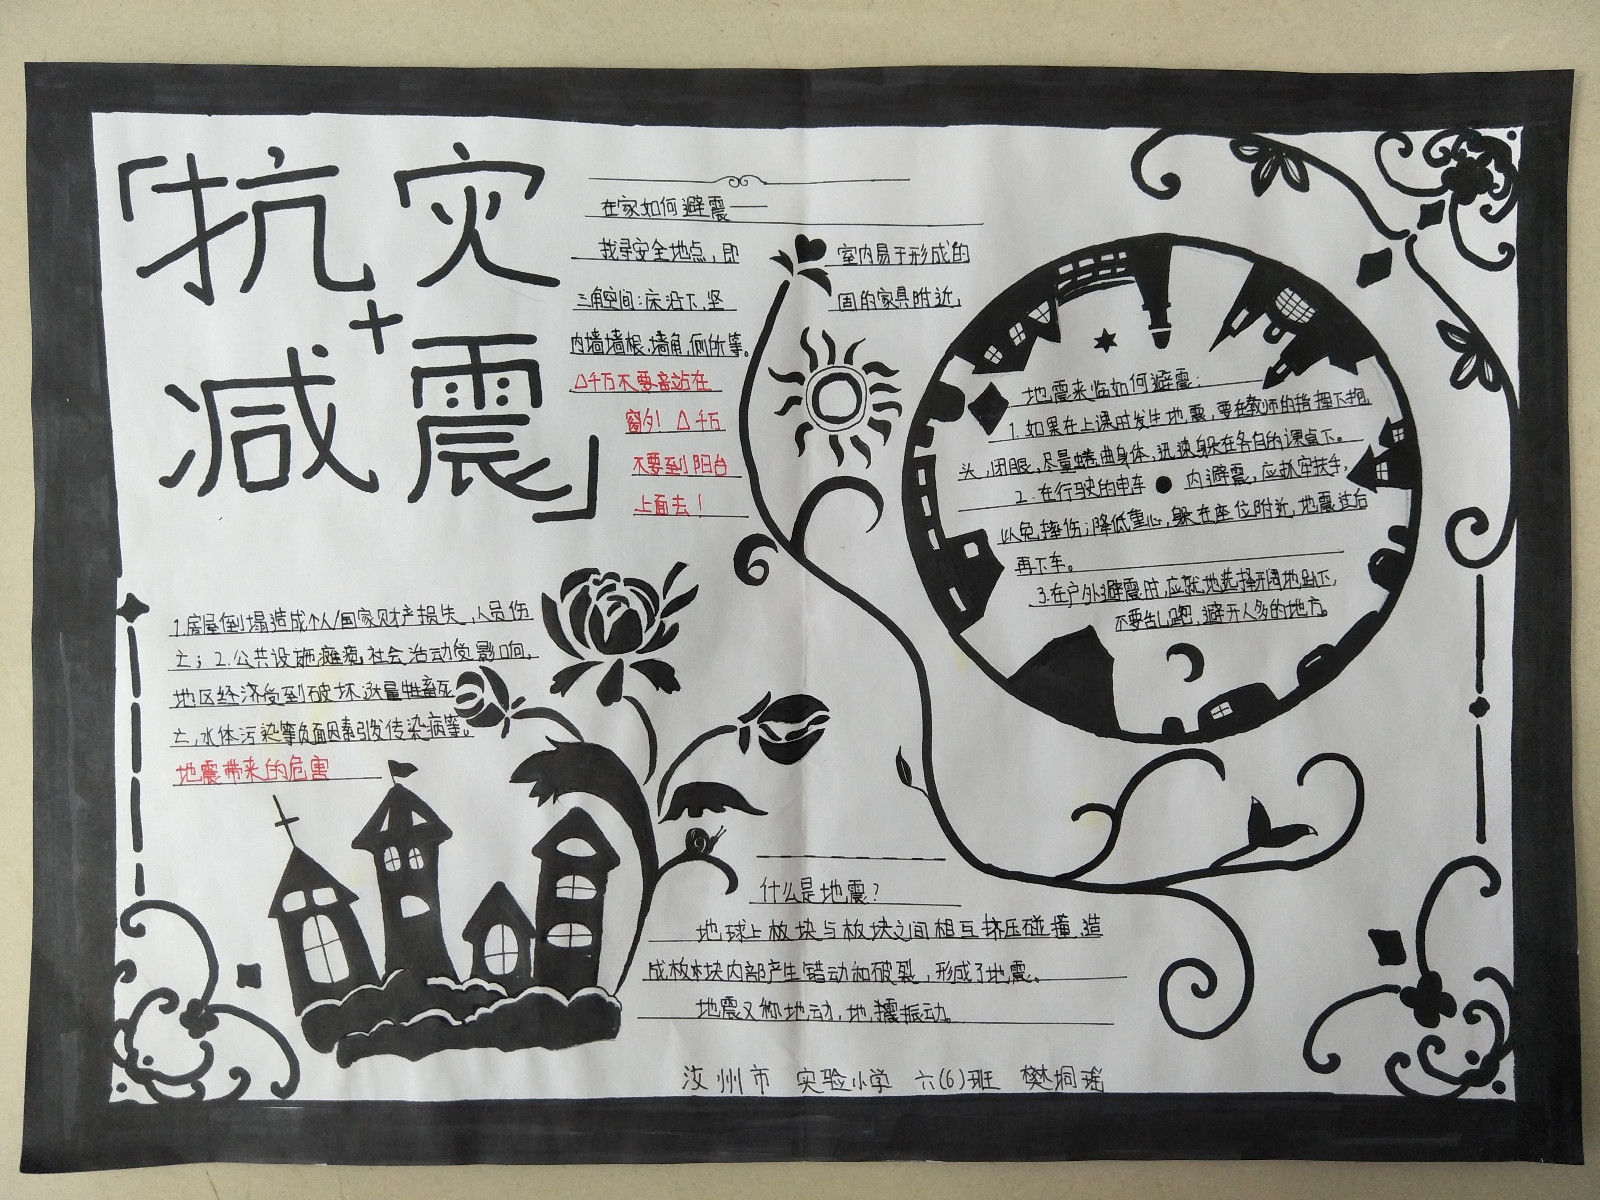 「抗灾
+
减震」
在家如何避震——
找寻安全地点，即 室内易于形成的
三角空间：床沿下，坚 固的家具附近，
内墙墙根、墙角，厕所等。
△千万不要高站在
窗外！△千万
不要到阳台
上面去！
地震来临如何避震：
1.如果在上课时发生地震，要在教师的指挥下抱
头，闭眼，尽量蜷曲身体，迅速躲在各自的课桌下。
2.在行驶的电车●内避震，应抓牢扶手，
以免摔伤；降低重心，躲在座位附近，地震过后
再下车。
3.在户外避震时，应就地选择开阔地趴下，
不要乱跑，避开人多的地方。
1.房屋倒塌造成个人/国家财产损失，人员伤
亡；2.公共设施瘫痪，社会活动受影响，
地区经济受到破坏，大量牲畜死
亡，水体污染等负面因素引发传染病等。
地震带来的危害
什么是地震？
地球上板块与板块之间相互挤压碰撞，造
成板块内部产生错动和破裂，形成了地震。
地震又称地动，地振动。
汝州市 实验小学 六(6)班 樊炯瑶